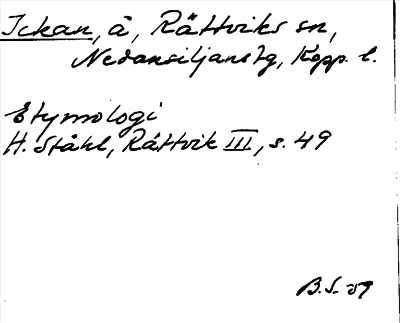 Ickan, å, Rättviks sn,
Nedansiljans tg, Kopp. l.
Etymologi
H. Ståhl, Rättvik III, s. 49
B.S. 59